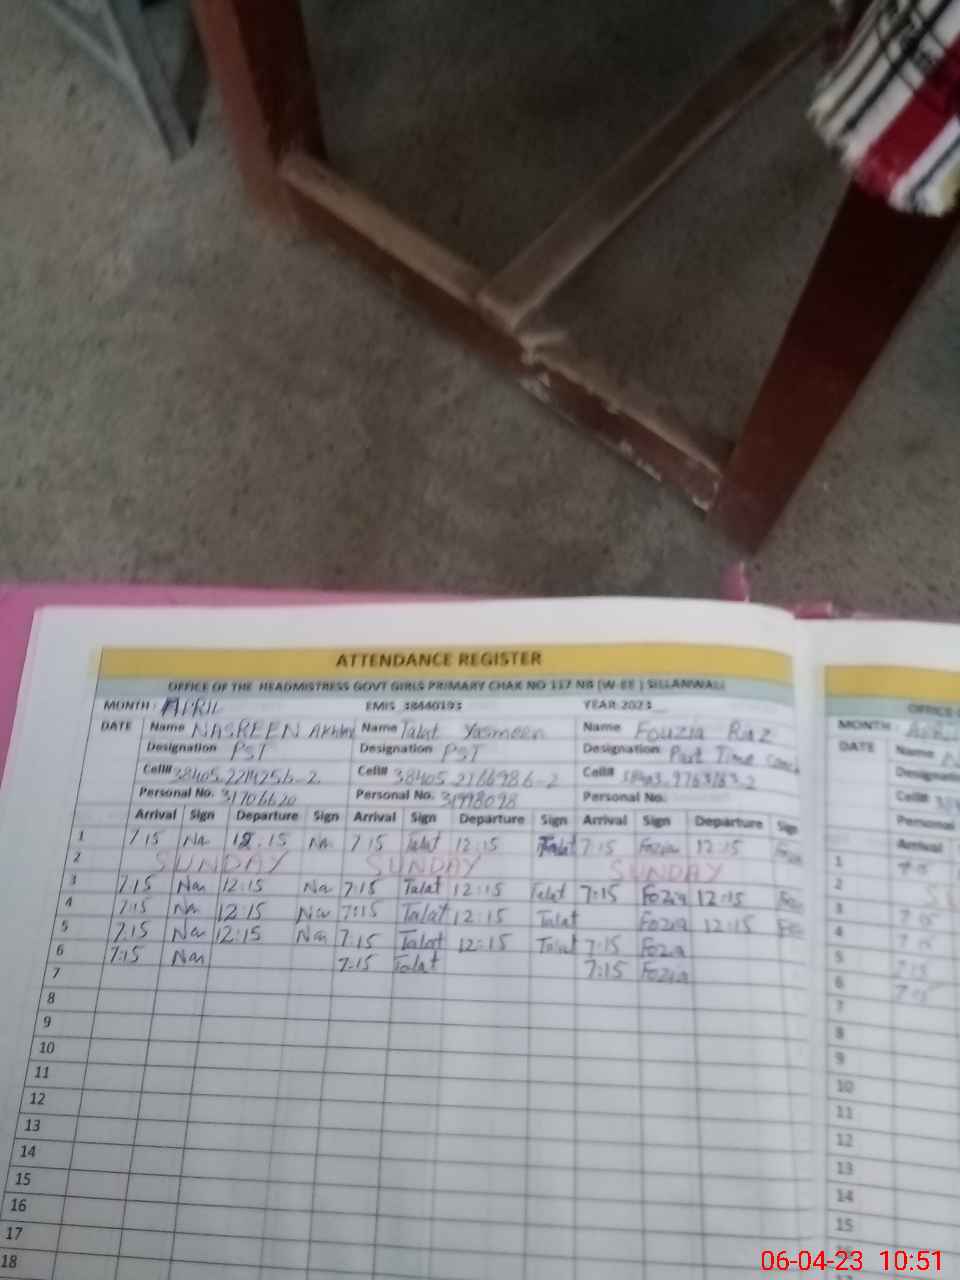 ATTENDANCE REGISTER
OFFICE OF THE HEADMISTRESS GOVT GIRLS PRIMARY CHAK NO 117 NB (W-EE) SILLANWALI
MONTH: APRIL EMIS 38440193 YEAR 2023
DATE Name NASREEN Akhter Name Talat Yasmeen Name Fouzia Riaz
Designation PST Designation PST Designation Part Time
Cell# Cell# Cell#
Personal No. 31706620 Personal No. 31998098 Personal No.
Arrival Sign Departure Sign Arrival Sign Departure Sign Arrival Sign Departure Sign
1 7:15 Na 12:15 Na 7:15 Talat 12:15 Talat 7:15 Fozia 12:15
2 SUNDAY SUNDAY SUNDAY
3 7:15 Nas 12:15 Nas 7:15 Talat 12:15 Talat 7:15 Fozia 12:15
4 7:15 Na 12:15 Nas 7:15 Talat 12:15 Talat Fozia 12:15
5 7:15 Nas 12:15 Nas 7:15 Talat 12:15 Talat 7:15 Fozia
6 7:15 Nas 7:15 Talat 7:15 Fozia
7
8
9
10
11
12
13
14
15
16
17
18
OFFICE
MONTH
DATE Name
Cell#
Personal
Arrival
1
2
3
4
5
6
7
8
9
10
11
12
13
14
15
06-04-23 10:51